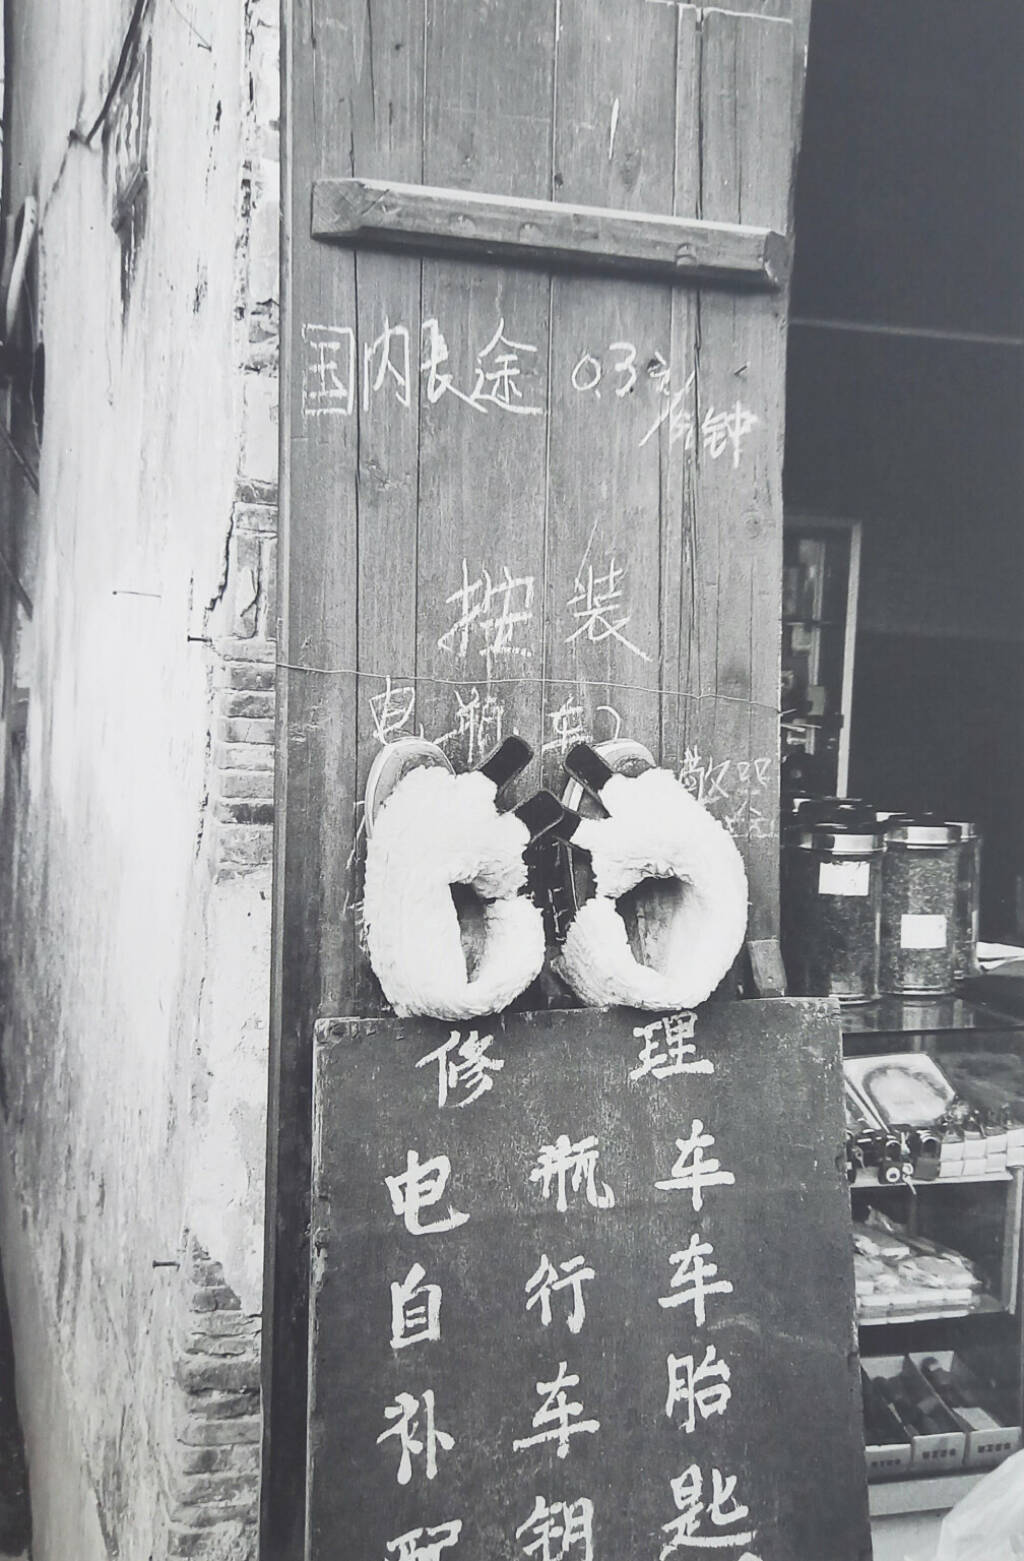 国内长途 0.3元/分钟
按装
电瓶车
修理
电瓶车
自行车
补车胎
配钥匙